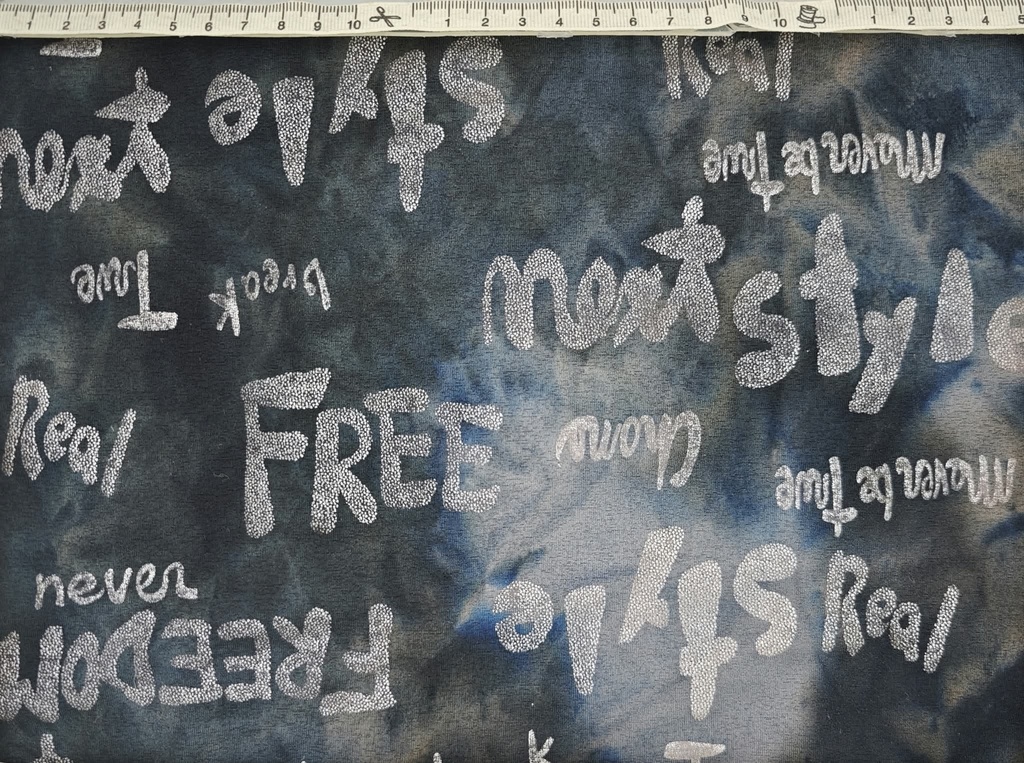 1 2 3 4 5 6 7 8 9 10 1 2 3 4 5 6 7 8 9 10 1 2 3 4 5
next style Real
never be True
True break
next style
Real FREE
never be True
style Real
never
FREEDOM